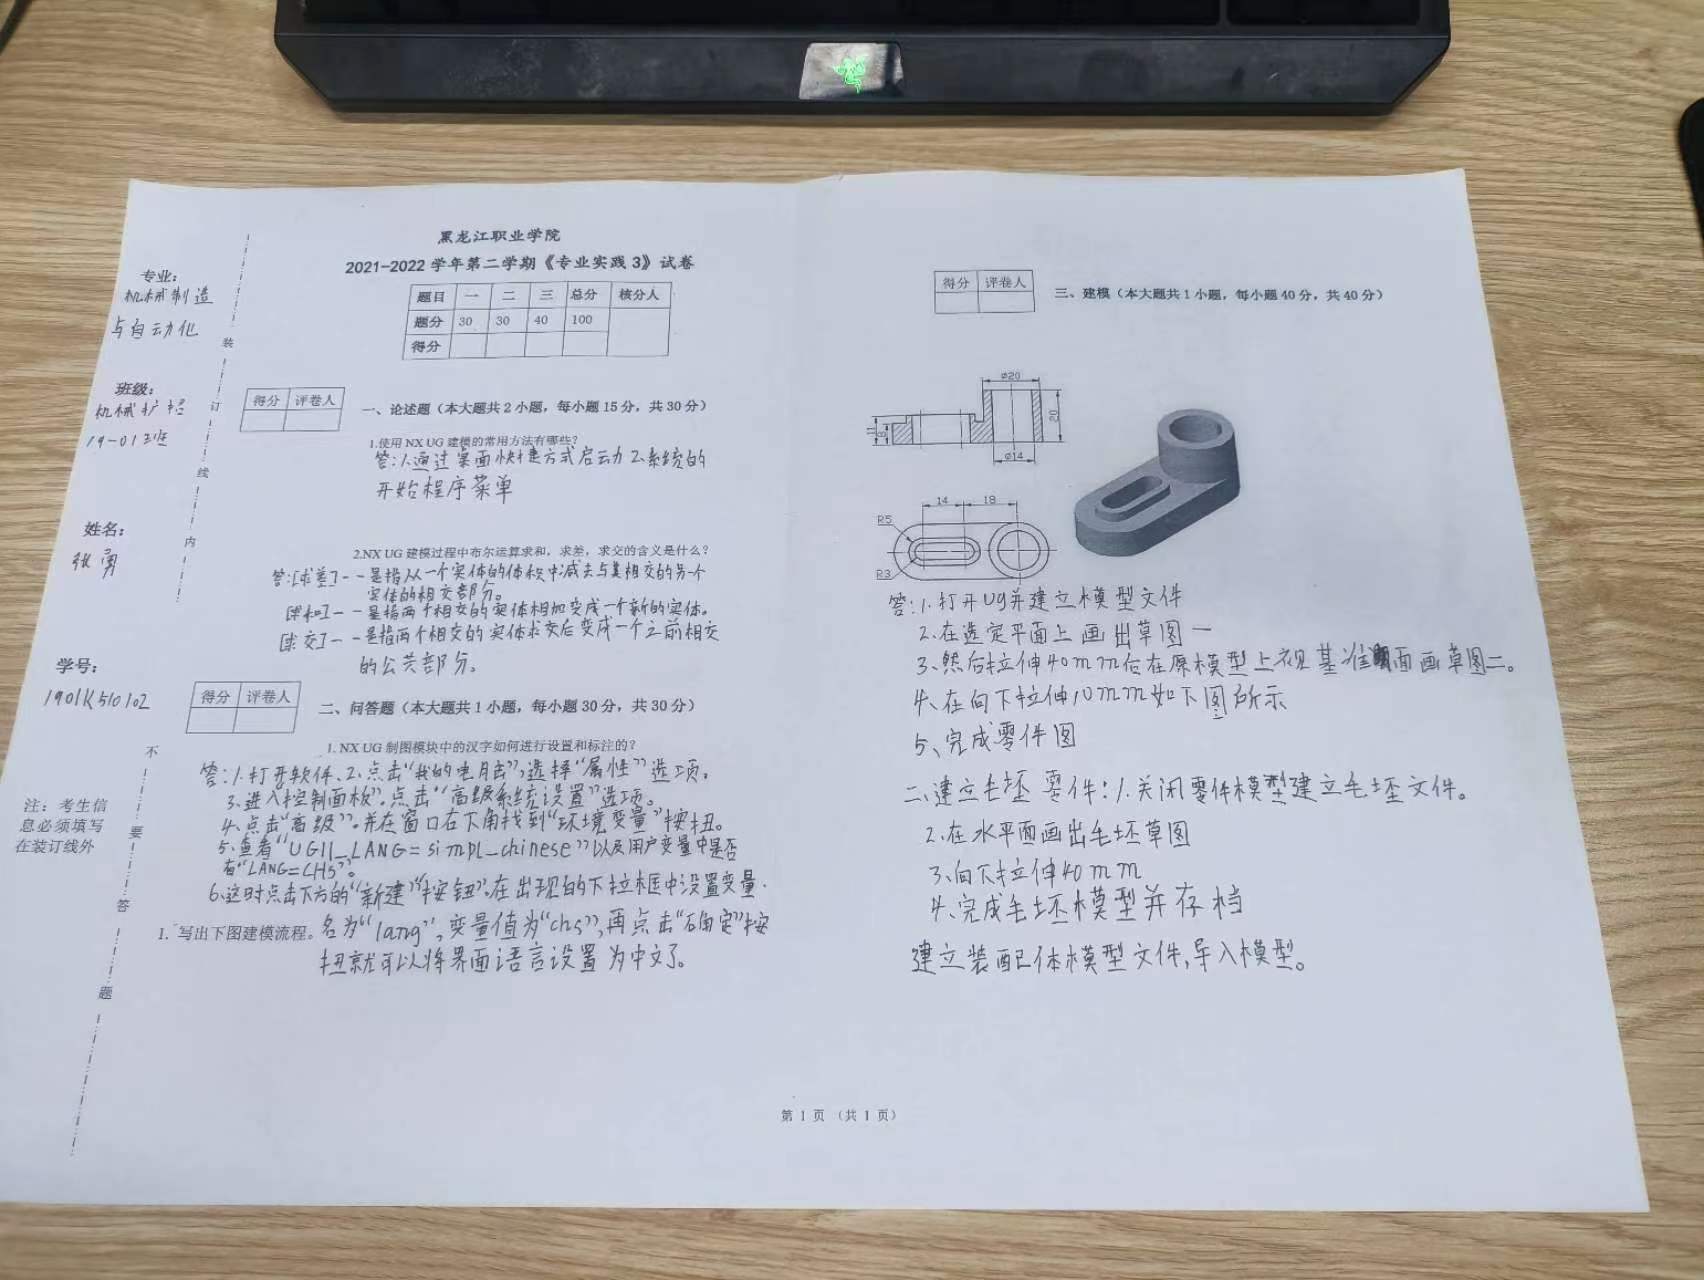 黑龙江职业学院
2021-2022 学年第二学期《专业实践 3》试卷
题目 一 二 三 总分 核分人
题分 30 30 40 100
得分
专业:
机械制造
与自动化
班级:
机械扩招
19-01班
姓名:
张勇
学号:
1901K510102
注：考生信
息必须填写
在装订线外
装
订
线
内
不
要
答
题
得分 评卷人
一、论述题（本大题共 2 小题，每小题 15 分，共 30 分）
1.使用 NX UG 建模的常用方法有哪些?
答:1.通过桌面快捷方式启动 2.系统的
开始程序菜单
2.NX UG 建模过程中布尔运算求和，求差，求交的含义是什么?
答:[求差]--是指从一个实体的体积中减去与其相交的另一个
实体的相交部分。
[求和]--是指两个相交的实体相加变成一个新的实体。
[求交]--是指两个相交的实体求交后变成一个之前相交
的公共部分。
得分 评卷人
二、问答题（本大题共 1 小题，每小题 30 分，共 30 分）
1. NX UG 制图模块中的汉字如何进行设置和标注的?
答:1.打开软件、2.点击“我的电脑”,选择“属性”选项。
3.进入控制面板”。点击“高级系统设置”选项。
4.点击“高级”。并在窗口右下角找到“环境变量”按扭。
5.查看“UGII_LANG=simpl_chinese”以及用户变量中是否
有“LANG=CHS”。
6.这时点击下方的“新建”按钮”.在出现的下拉框中设置变量.
1. 写出下图建模流程。名为“lang”,变量值为“chs”,再点击“确定”按
扭就可以将界面语言设置为中文了。
得分 评卷人
三、建模（本大题共 1 小题，每小题 40 分，共 40 分）
ø20
11
8
20
ø14
14
18
R5
R3
答:1.打开ug并建立模型文件
2.在选定平面上画出草图一
3.然后拉伸40mm后在原模型上视基准面画草图二。
4.在向下拉伸10mm如下图所示
5、完成零件图
二、建立毛坯零件:1.关闭零件模型建立毛坯文件。
2.在水平面画出毛坯草图
3.向下拉伸40mm
4.完成毛坯模型并存档
建立装配体模型文件,导入模型。
第 1 页 （共 1 页）